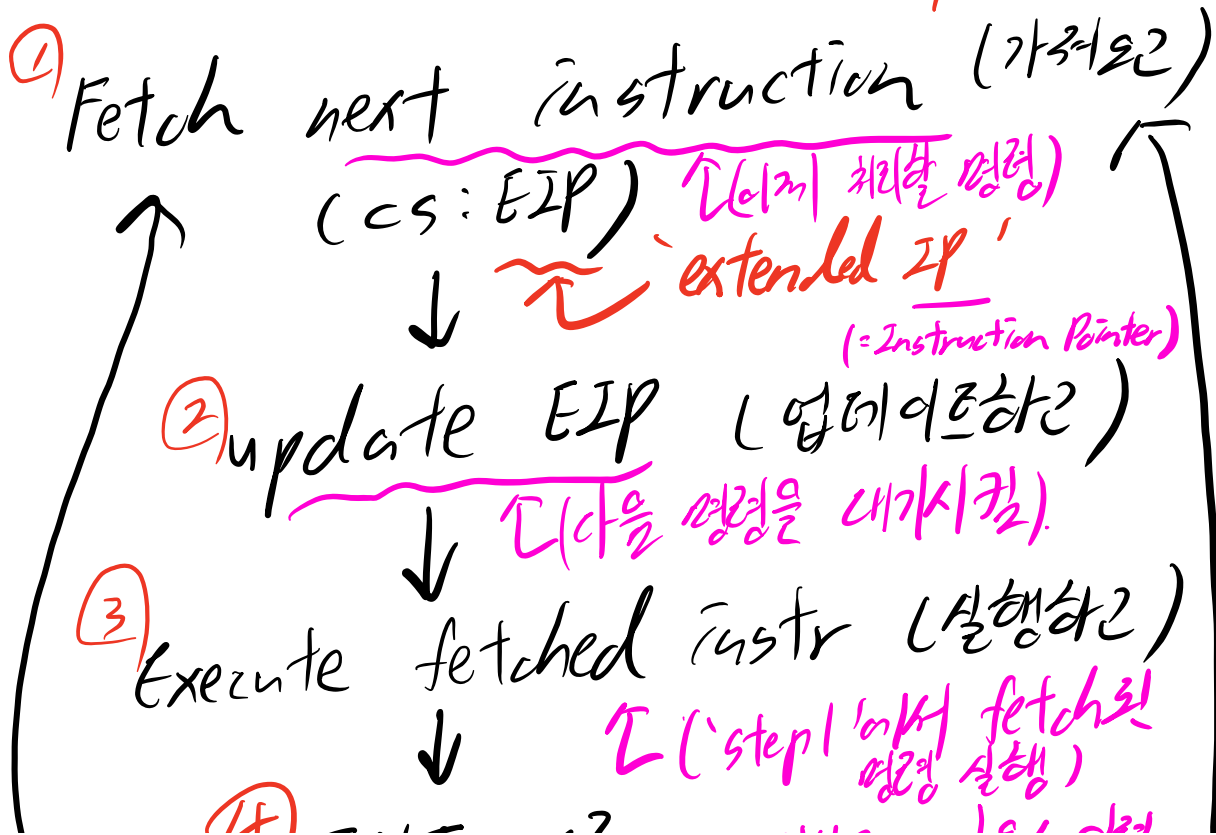 ① Fetch next instruction (가져오고)
(cs:EIP) ↑(이제 처리할 명령)
'extended IP'
(=Instruction Pointer)
② update EIP (업데이트하고)
↑(다음 명령을 대기시킴).
③ Execute fetched instr (실행하고)
↑('step1'에서 fetch된
명령 실행)
④